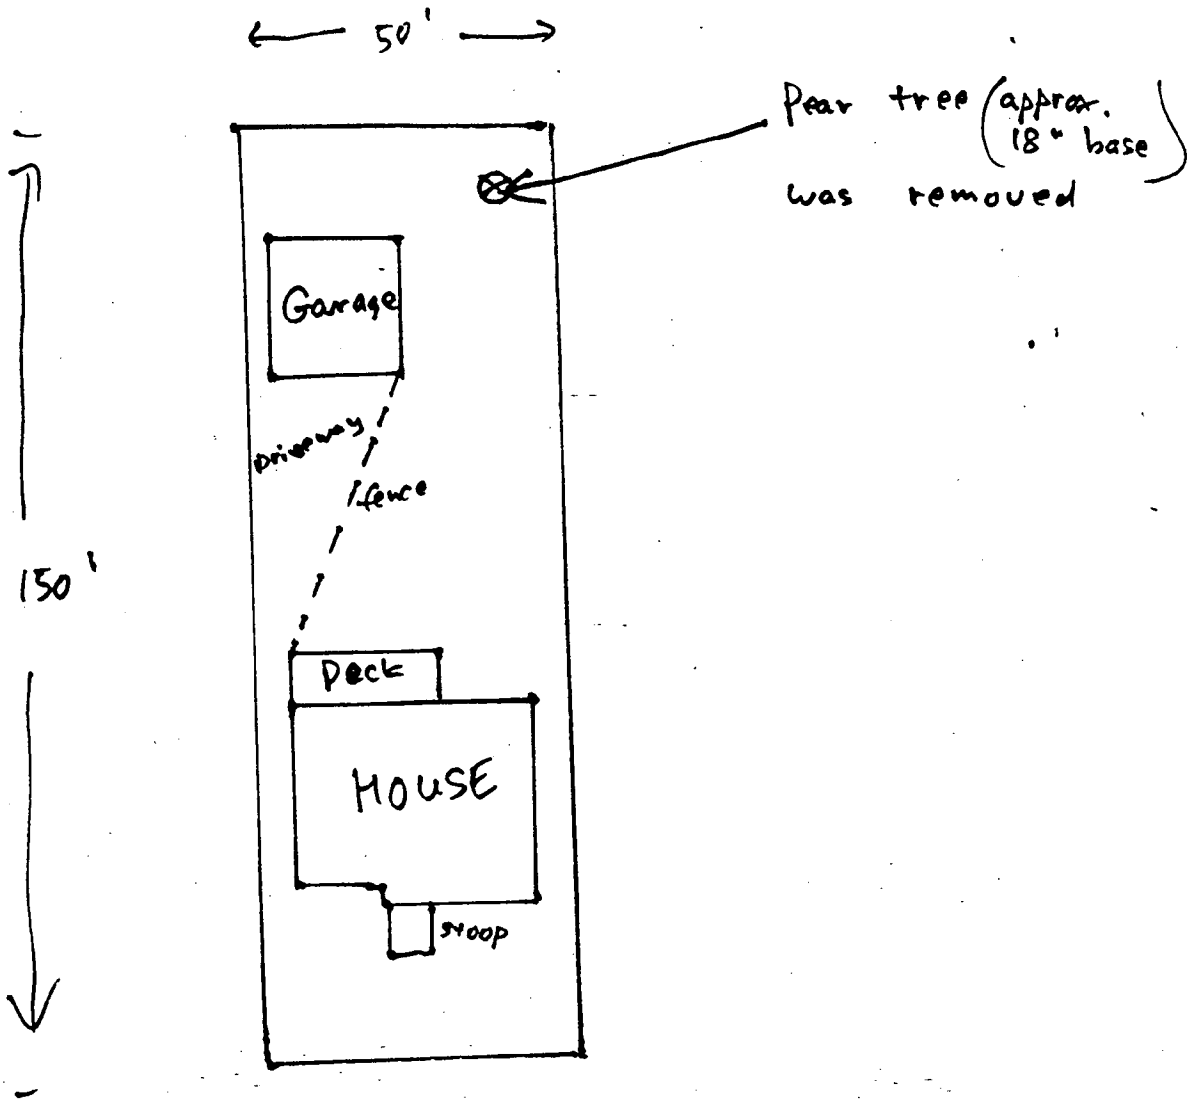 50'
Pear tree (approx.
18" base)
was removed
Garage
Driveway
fence
150'
Deck
HOUSE
stoop